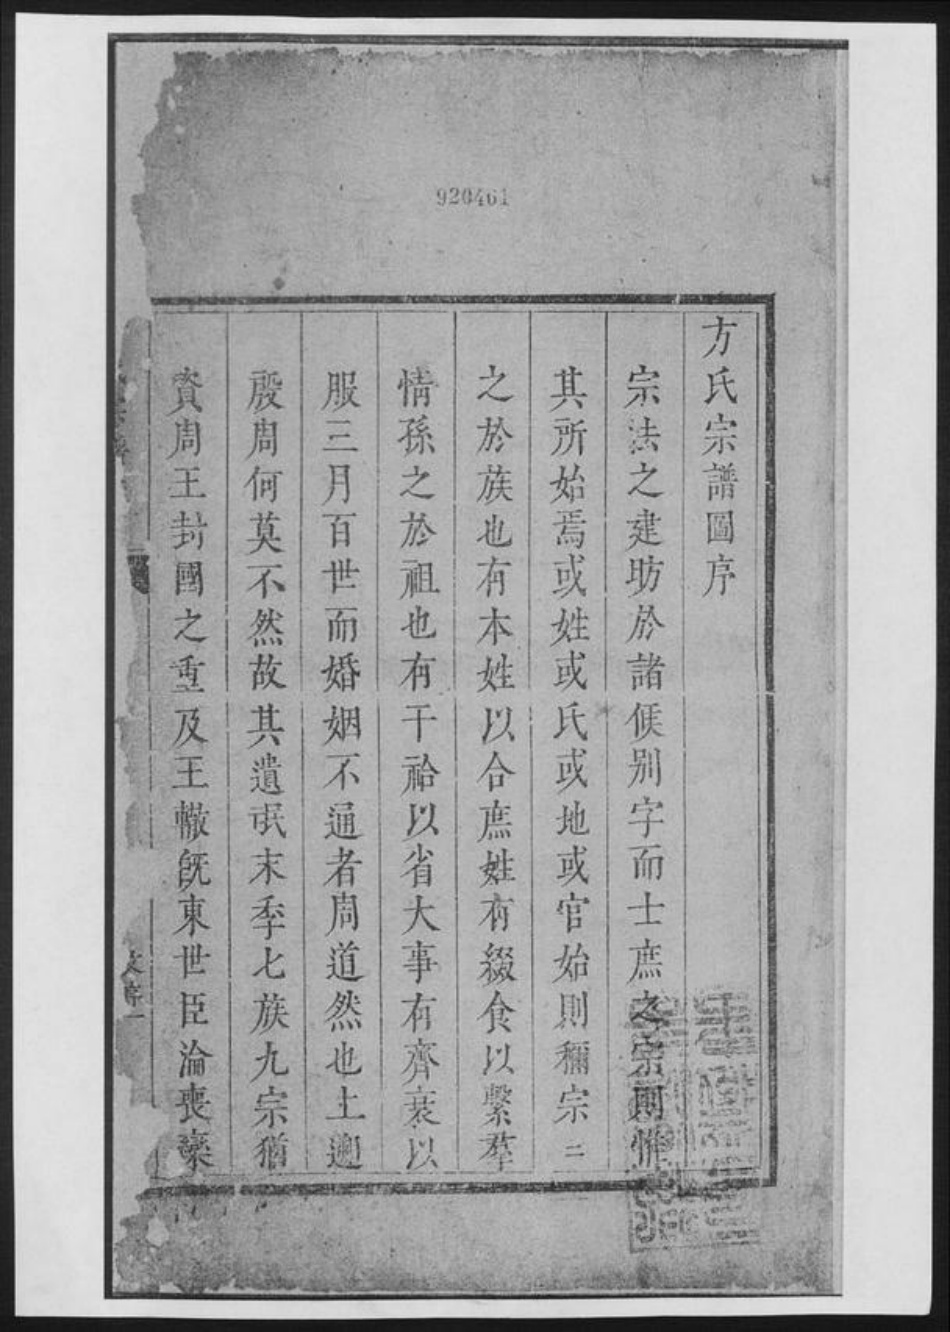 920461
方氏宗譜圖序
宗法之建昉於諸候别字而士庶之宗則惟
其所始焉或姓或氏或地或官始則稱宗二
之於族也有本姓以合庶姓有綴食以繫羣
情孫之於祖也有干祫以省大事有齊衰以
服三月百世而婚姻不通者周道然也土遡
殷周何莫不然故其遺氓末季七族九宗猶
資周王封國之重及王轍旣東世臣淪喪欒